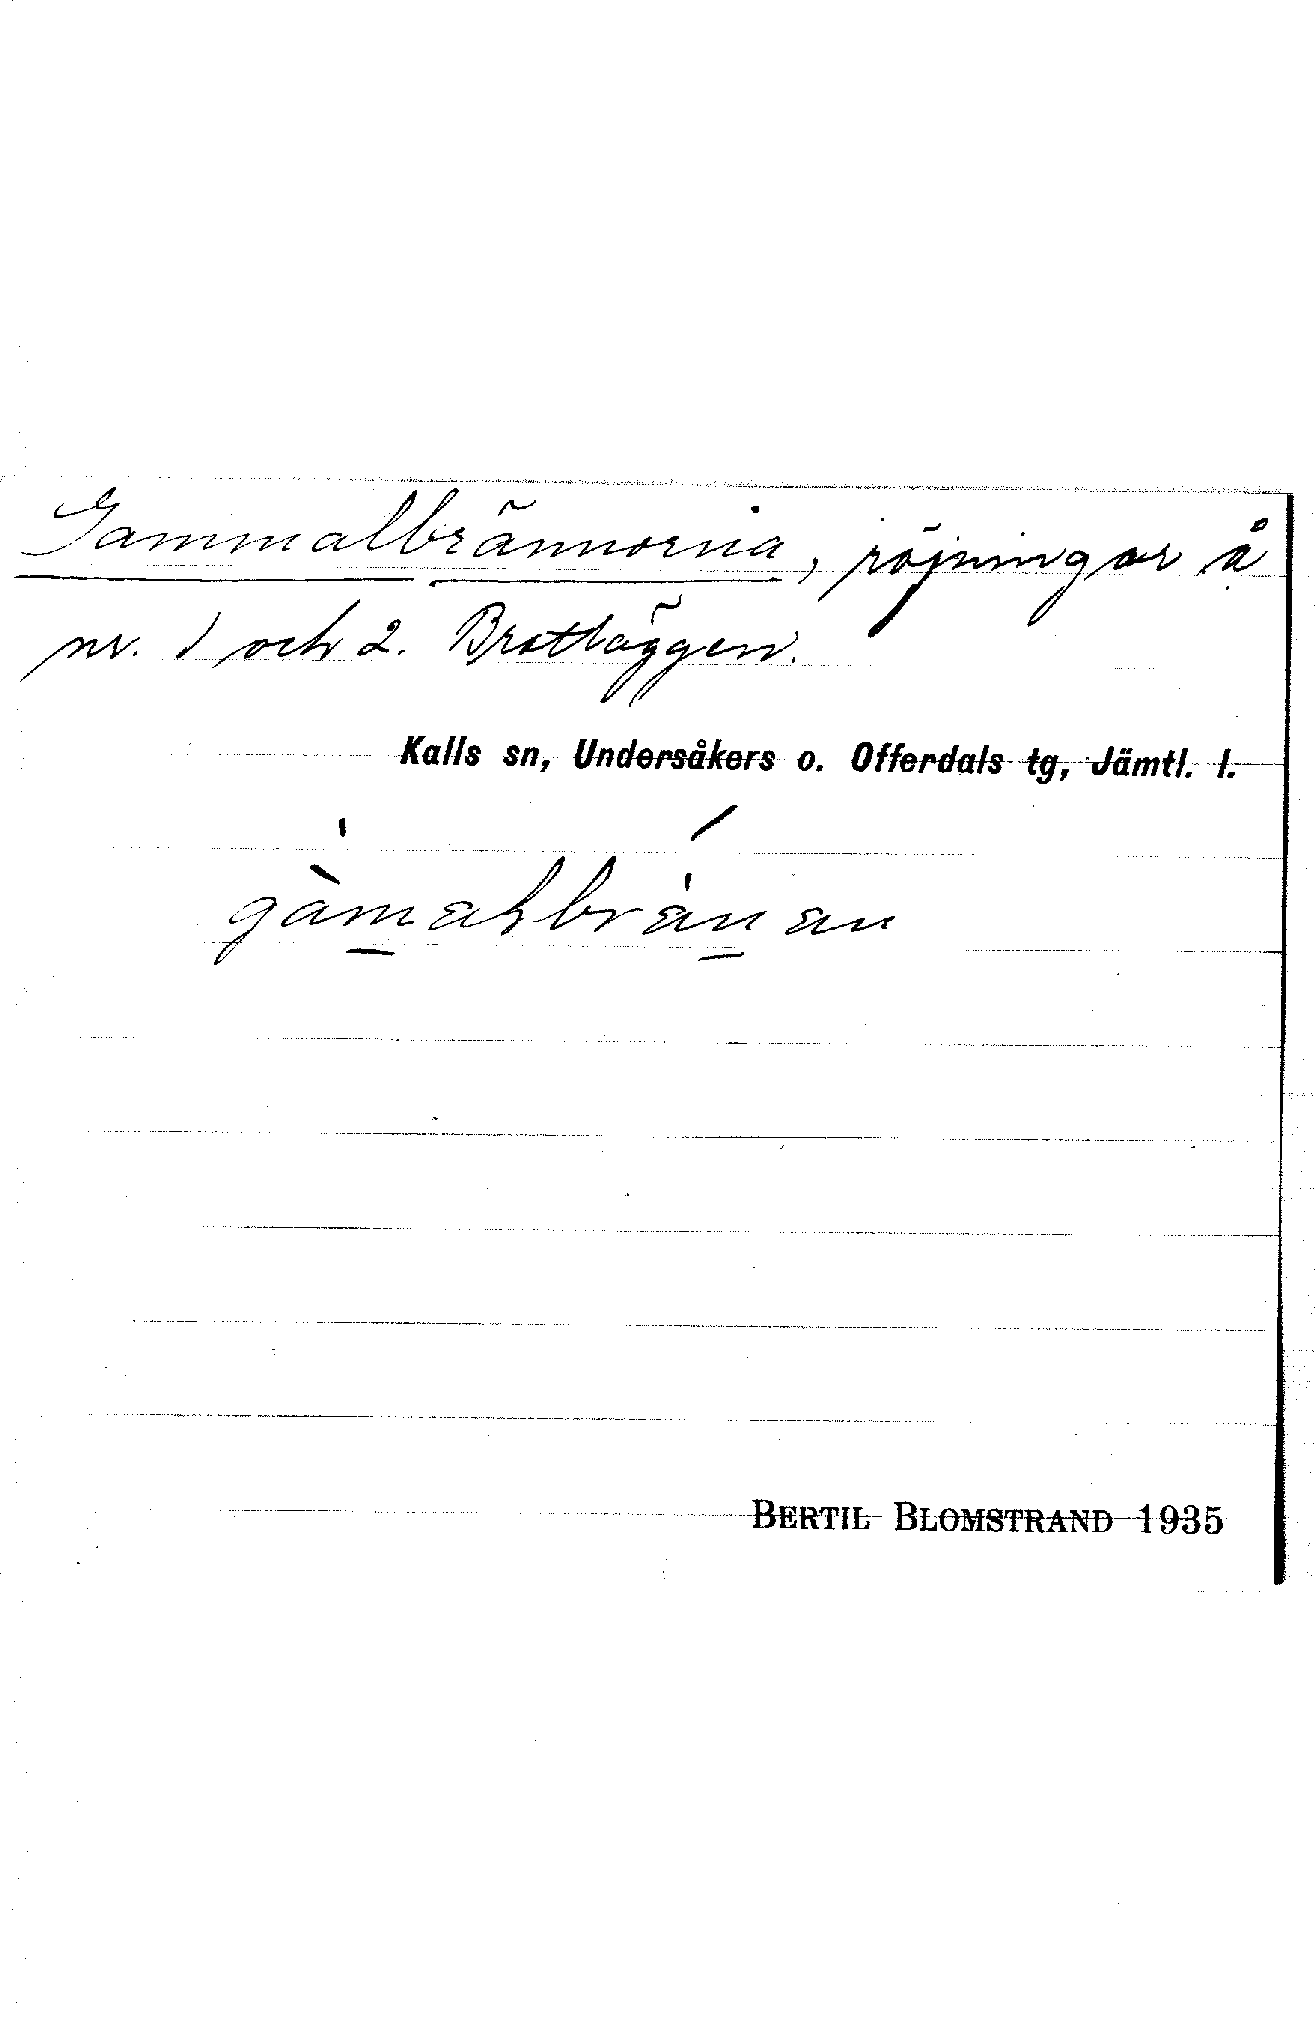 Gammalbrännorna, röjningar å
nr. 1 och 2. Brattäggen.
Kalls sn, Undersåkers o. Offerdals tg, Jämtl. l.
BERTIL BLOMSTRAND 1935